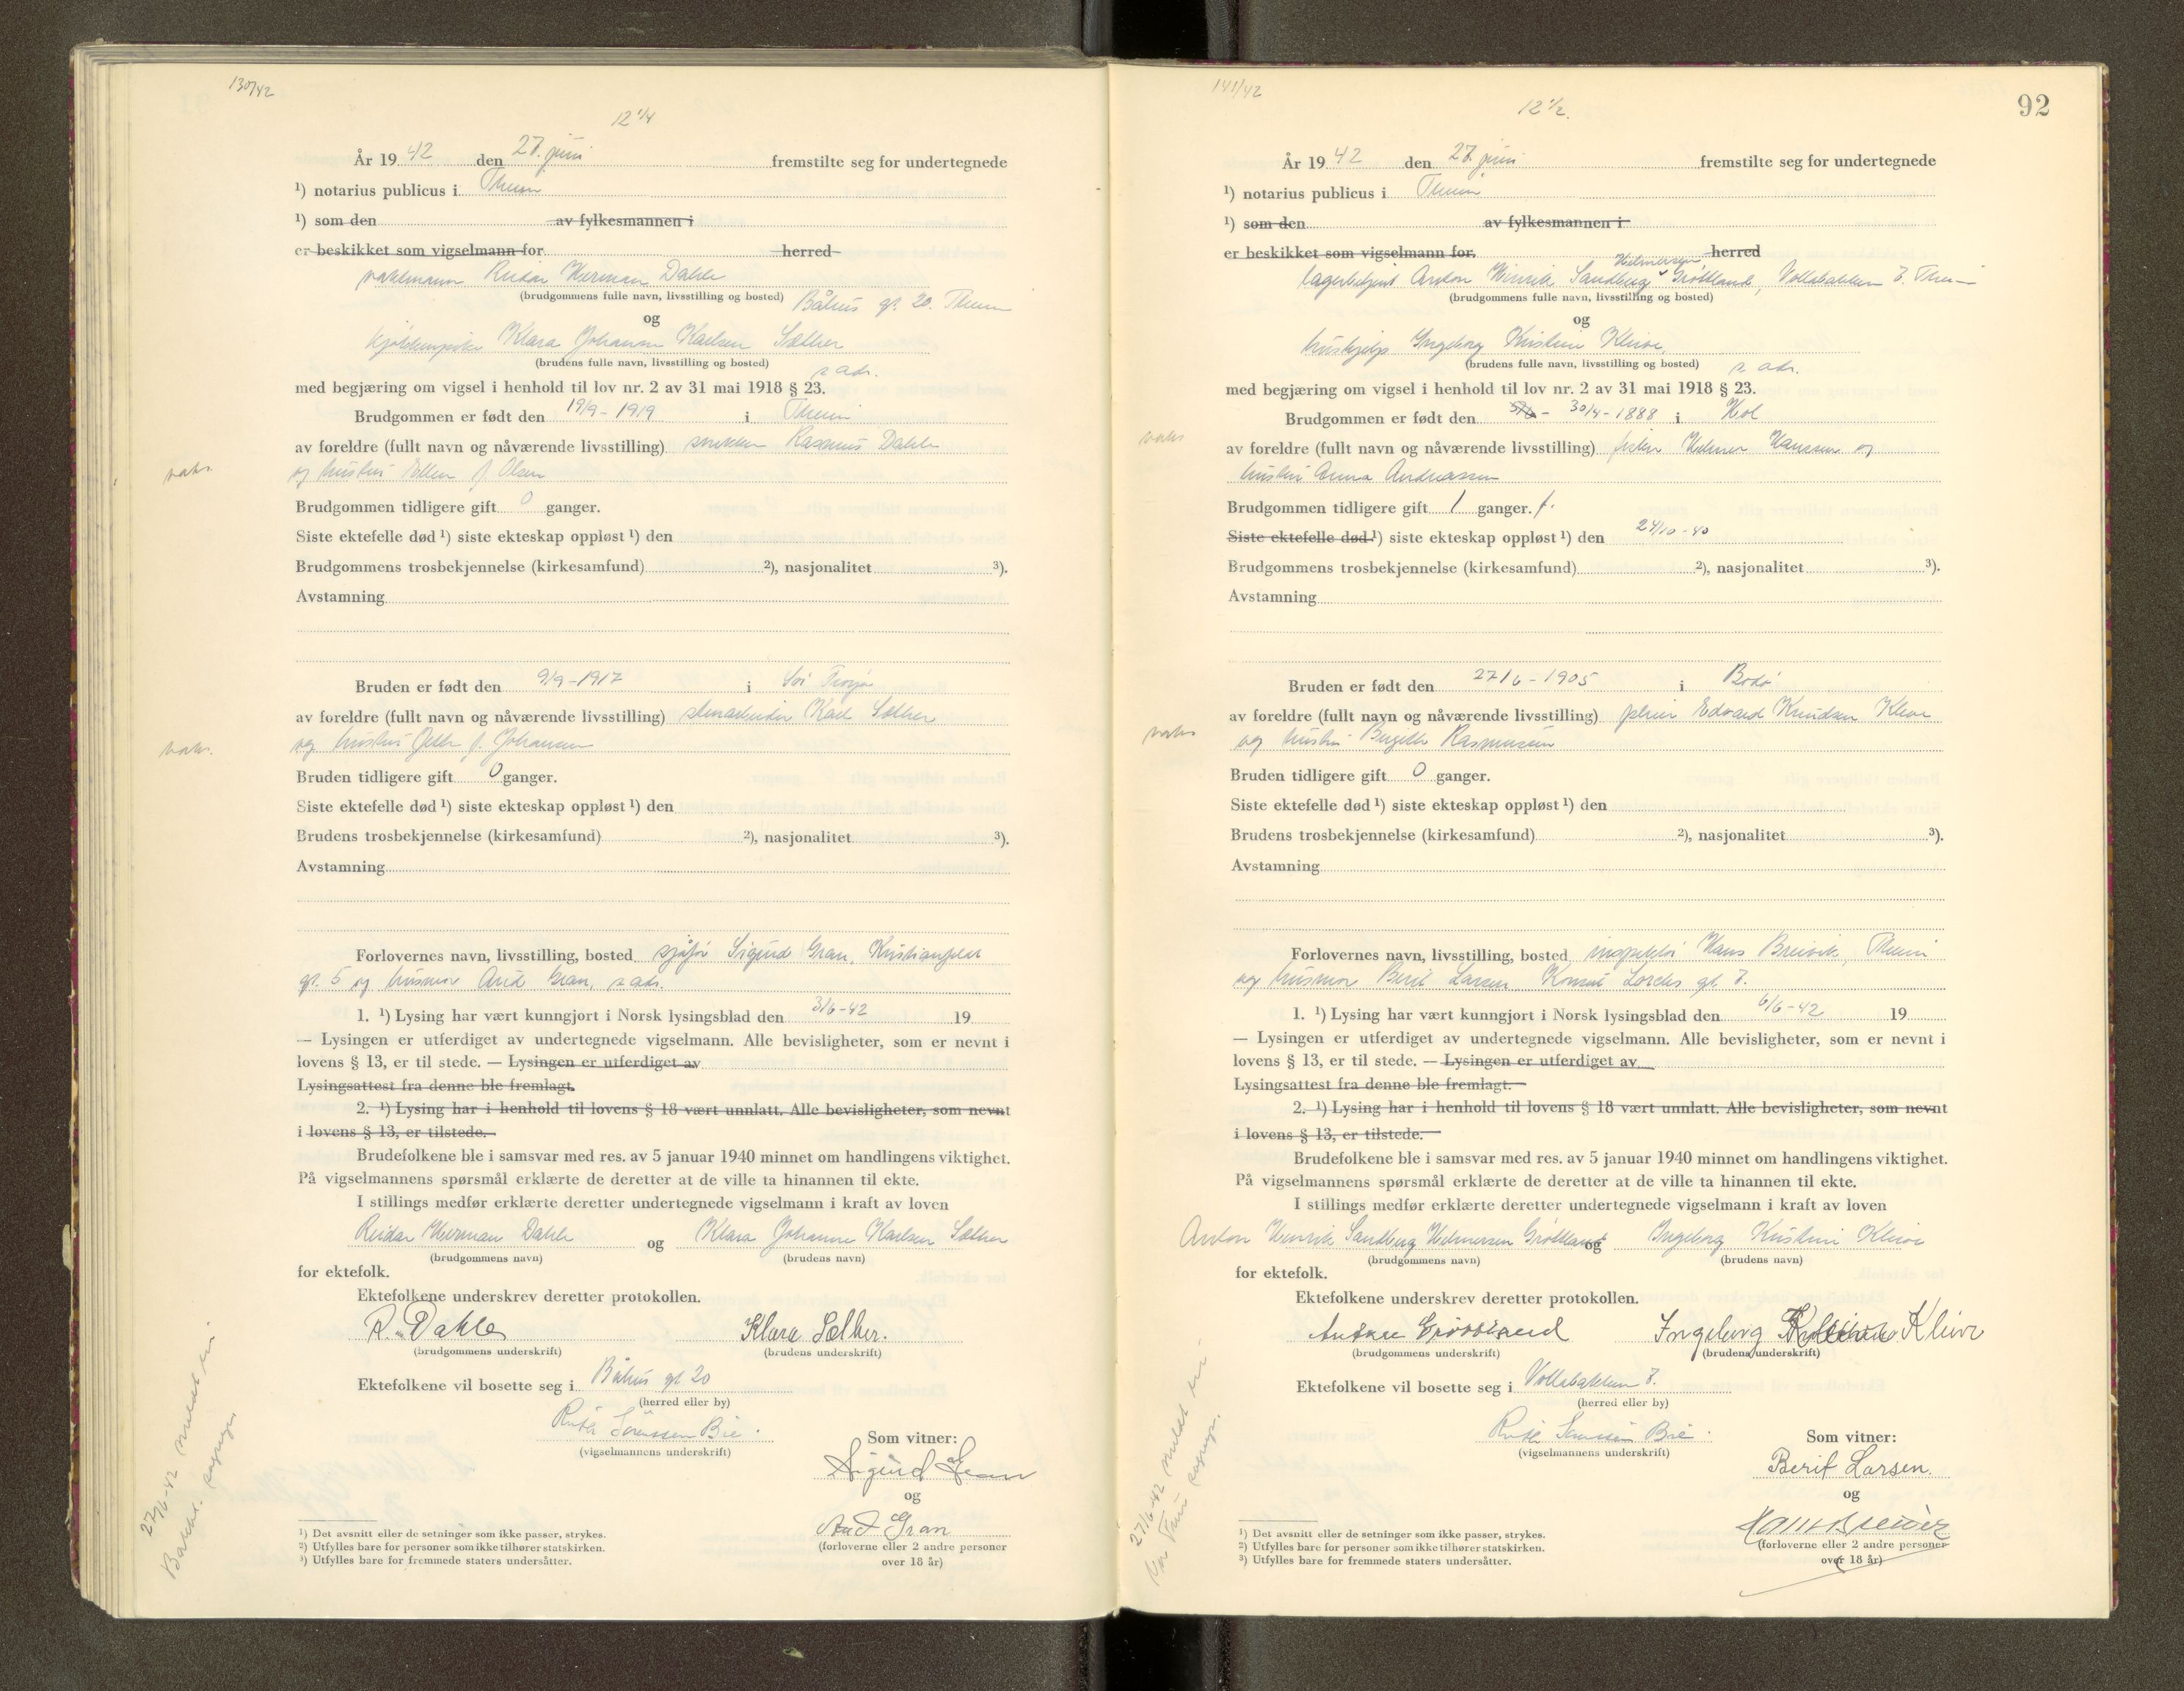 130/42
12 1/4
År 19 42 den 27. juni fremstilte seg for undertegnede
¹) notarius publicus i Theim
¹) som den av fylkesmannen i
er beskikket som vigselmann for herred
Reidar Herman Dahle
(brudgommens fulle navn, livsstilling og bosted) Båhus gt. 20. Theim
og
Klara Johanne Karlsen Sæther
(brudens fulle navn, livsstilling og bosted) s. adr.
med begjæring om vigsel i henhold til lov nr. 2 av 31 mai 1918 § 23.
Brudgommen er født den 19/9-1919 i Theim
av foreldre (fullt navn og nåværende livsstilling) snekker Rasmus Dahle
og hustru Ellen f. Olsen
Brudgommen tidligere gift 0 ganger.
Siste ektefelle død ¹) siste ekteskap oppløst ¹) den
Brudgommens trosbekjennelse (kirkesamfund) ²), nasjonalitet ³).
Avstamning
Bruden er født den 9/9-1917 i Sør Frøya
av foreldre (fullt navn og nåværende livsstilling) stenarbeider Karl Sæther
og hustru f. Johansen
Bruden tidligere gift 0 ganger.
Siste ektefelle død ¹) siste ekteskap oppløst ¹) den
Brudens trosbekjennelse (kirkesamfund) ²), nasjonalitet ³).
Avstamning
Forlovernes navn, livsstilling, bosted sjåfør Sigurd Gran, Kristianfeldt
gt. 5 og husmor Aud Gran, s. adr.
1. ¹) Lysing har vært kunngjort i Norsk lysingsblad den 3/6-42 19
— Lysingen er utferdiget av undertegnede vigselmann. Alle bevisligheter, som er nevnt i
lovens § 13, er til stede. — Lysingen er utferdiget av
Lysingsattest fra denne ble fremlagt.
2. ¹) Lysing har i henhold til lovens § 18 vært unnlatt. Alle bevisligheter, som nevnt
i lovens § 13, er tilstede.
Brudefolkene ble i samsvar med res. av 5 januar 1940 minnet om handlingens viktighet.
På vigselmannens spørsmål erklærte de deretter at de ville ta hinannen til ekte.
I stillings medfør erklærte deretter undertegnede vigselmann i kraft av loven
Reidar Herman Dahle og Klara Johanne Karlsen Sæther
(brudgommens navn) (brudens navn)
for ektefolk.
Ektefolkene underskrev deretter protokollen.
R. Dahle Klara Sæther.
(brudgommens underskrift) (brudens underskrift)
Ektefolkene vil bosette seg i Båhus gt 20
(herred eller by)
Sørenssen Bie.
(vigselmannens underskrift)
Som vitner:
Sigurd Gran
og
Aud Gran
(forloverne eller 2 andre personer
over 18 år)
¹) Det avsnitt eller de setninger som ikke passer, strykes.
²) Utfylles bare for personer som ikke tilhører statskirken.
³) Utfylles bare for fremmede staters undersåtter.
27/6-42 meldt til
141/42
12 1/2.
92
År 19 42 den 27. juni fremstilte seg for undertegnede
¹) notarius publicus i Theim
¹) som den av fylkesmannen i
er beskikket som vigselmann for. herred
Helmersen
lagerbetjent Anton Henrik Sandberg Grøttland, Vollabakken 7. Theim
(brudgommens fulle navn, livsstilling og bosted)
og
hushjelp Ingeborg Kristine Kleive,
(brudens fulle navn, livsstilling og bosted) s. adr.
med begjæring om vigsel i henhold til lov nr. 2 av 31 mai 1918 § 23.
Brudgommen er født den 30/4-1888 i Hol
av foreldre (fullt navn og nåværende livsstilling) fisker Helmer Hanssen og
hustru Anna Andreassen
Brudgommen tidligere gift 1 ganger. f.
Siste ektefelle død ¹) siste ekteskap oppløst ¹) den 24/10-40
Brudgommens trosbekjennelse (kirkesamfund) ²), nasjonalitet ³).
Avstamning
Bruden er født den 27/6-1905 i Bodø
av foreldre (fullt navn og nåværende livsstilling) Edvard Knudsen Kleive
og hustru Birgitte Rasmussen
Bruden tidligere gift 0 ganger.
Siste ektefelle død ¹) siste ekteskap oppløst ¹) den
Brudens trosbekjennelse (kirkesamfund) ²), nasjonalitet ³).
Avstamning
Forlovernes navn, livsstilling, bosted inspektør Hans Breivik, Theim
og husmor Berit Larsen Konsul Lorcks gt. 7.
1. ¹) Lysing har vært kunngjort i Norsk lysingsblad den 6/6-42 19
— Lysingen er utferdiget av undertegnede vigselmann. Alle bevisligheter, som er nevnt i
lovens § 13, er til stede. — Lysingen er utferdiget av
Lysingsattest fra denne ble fremlagt.
2. ¹) Lysing har i henhold til lovens § 18 vært unnlatt. Alle bevisligheter, som nevnt
i lovens § 13, er tilstede.
Brudefolkene ble i samsvar med res. av 5 januar 1940 minnet om handlingens viktighet.
På vigselmannens spørsmål erklærte de deretter at de ville ta hinannen til ekte.
I stillings medfør erklærte deretter undertegnede vigselmann i kraft av loven
Anton Henrik Sandberg Helmersen Grøttland og Ingeborg Kristine Kleive
(brudgommens navn) (brudens navn)
for ektefolk.
Ektefolkene underskrev deretter protokollen.
Grøttland Ingeborg Kleive
(brudgommens underskrift) (brudens underskrift)
Ektefolkene vil bosette seg i Vollabakken 7.
(herred eller by)
Sørenssen Bie.
(vigselmannens underskrift)
Som vitner:
Berit Larsen.
og
Hans Breivik
(forloverne eller 2 andre personer
over 18 år)
¹) Det avsnitt eller de setninger som ikke passer, strykes.
²) Utfylles bare for personer som ikke tilhører statskirken.
³) Utfylles bare for fremmede staters undersåtter.
27/6-42 meldt til